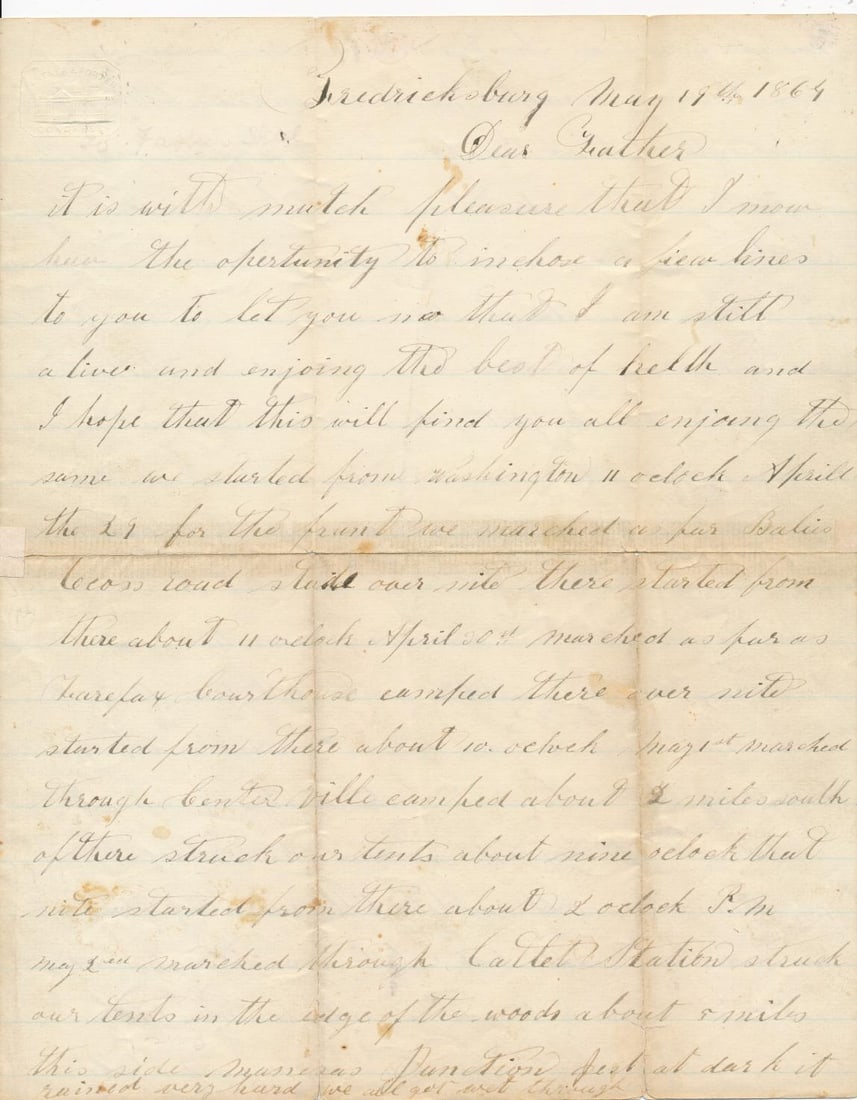 Fredricksburg May 19th 1864
Dear Father
it is with mutch pleasure that I now
have the opertunity to inclose a fiew lines
to you to let you no that I am still
alive and enjoing the best of helth and
I hope that this will find you all enjoing the
same we started from Washington 11 oclock Aprill
the 29 for the frunt we marched as far Balies
Cross road staid over nite there started from
there about 11 oclock April 30st marched as far as
Farefax Courthouse camped there over nite
started from there about 10. oclock May 1st marched
through Center ville camped about 2 miles south
of there struck our tents about nine oclock that
nite started from there about 2 oclock P. M
May 2ed marched through Catlet Station struck
our tents in the edge of the woods about miles
this side Manasas Junction Jest at dark it
rained very hard we all got wet through